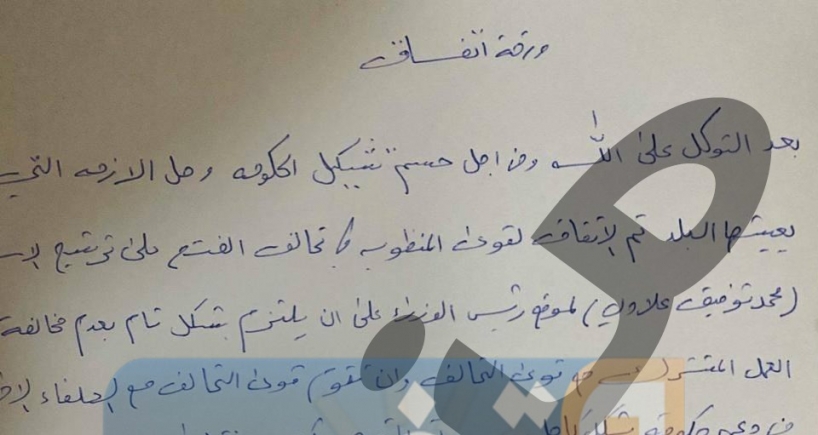 ورقة اتفاق
بعد التوكل على الله ومن اجل حسم تشكيل الحكومه وحل الازمه التي
يعيشها البلد تم الاتفاق لقوى المنظويه تحالف الفتح على ترشيح
(محمد توفيق علاوي) لموقع رئيس الوزراء على ان يلتزم بشكل تام بعدم مخالفة
العمل المشترك قوى التحالف وان تقوم قوى التحالف مع الحلفاء
حكومة